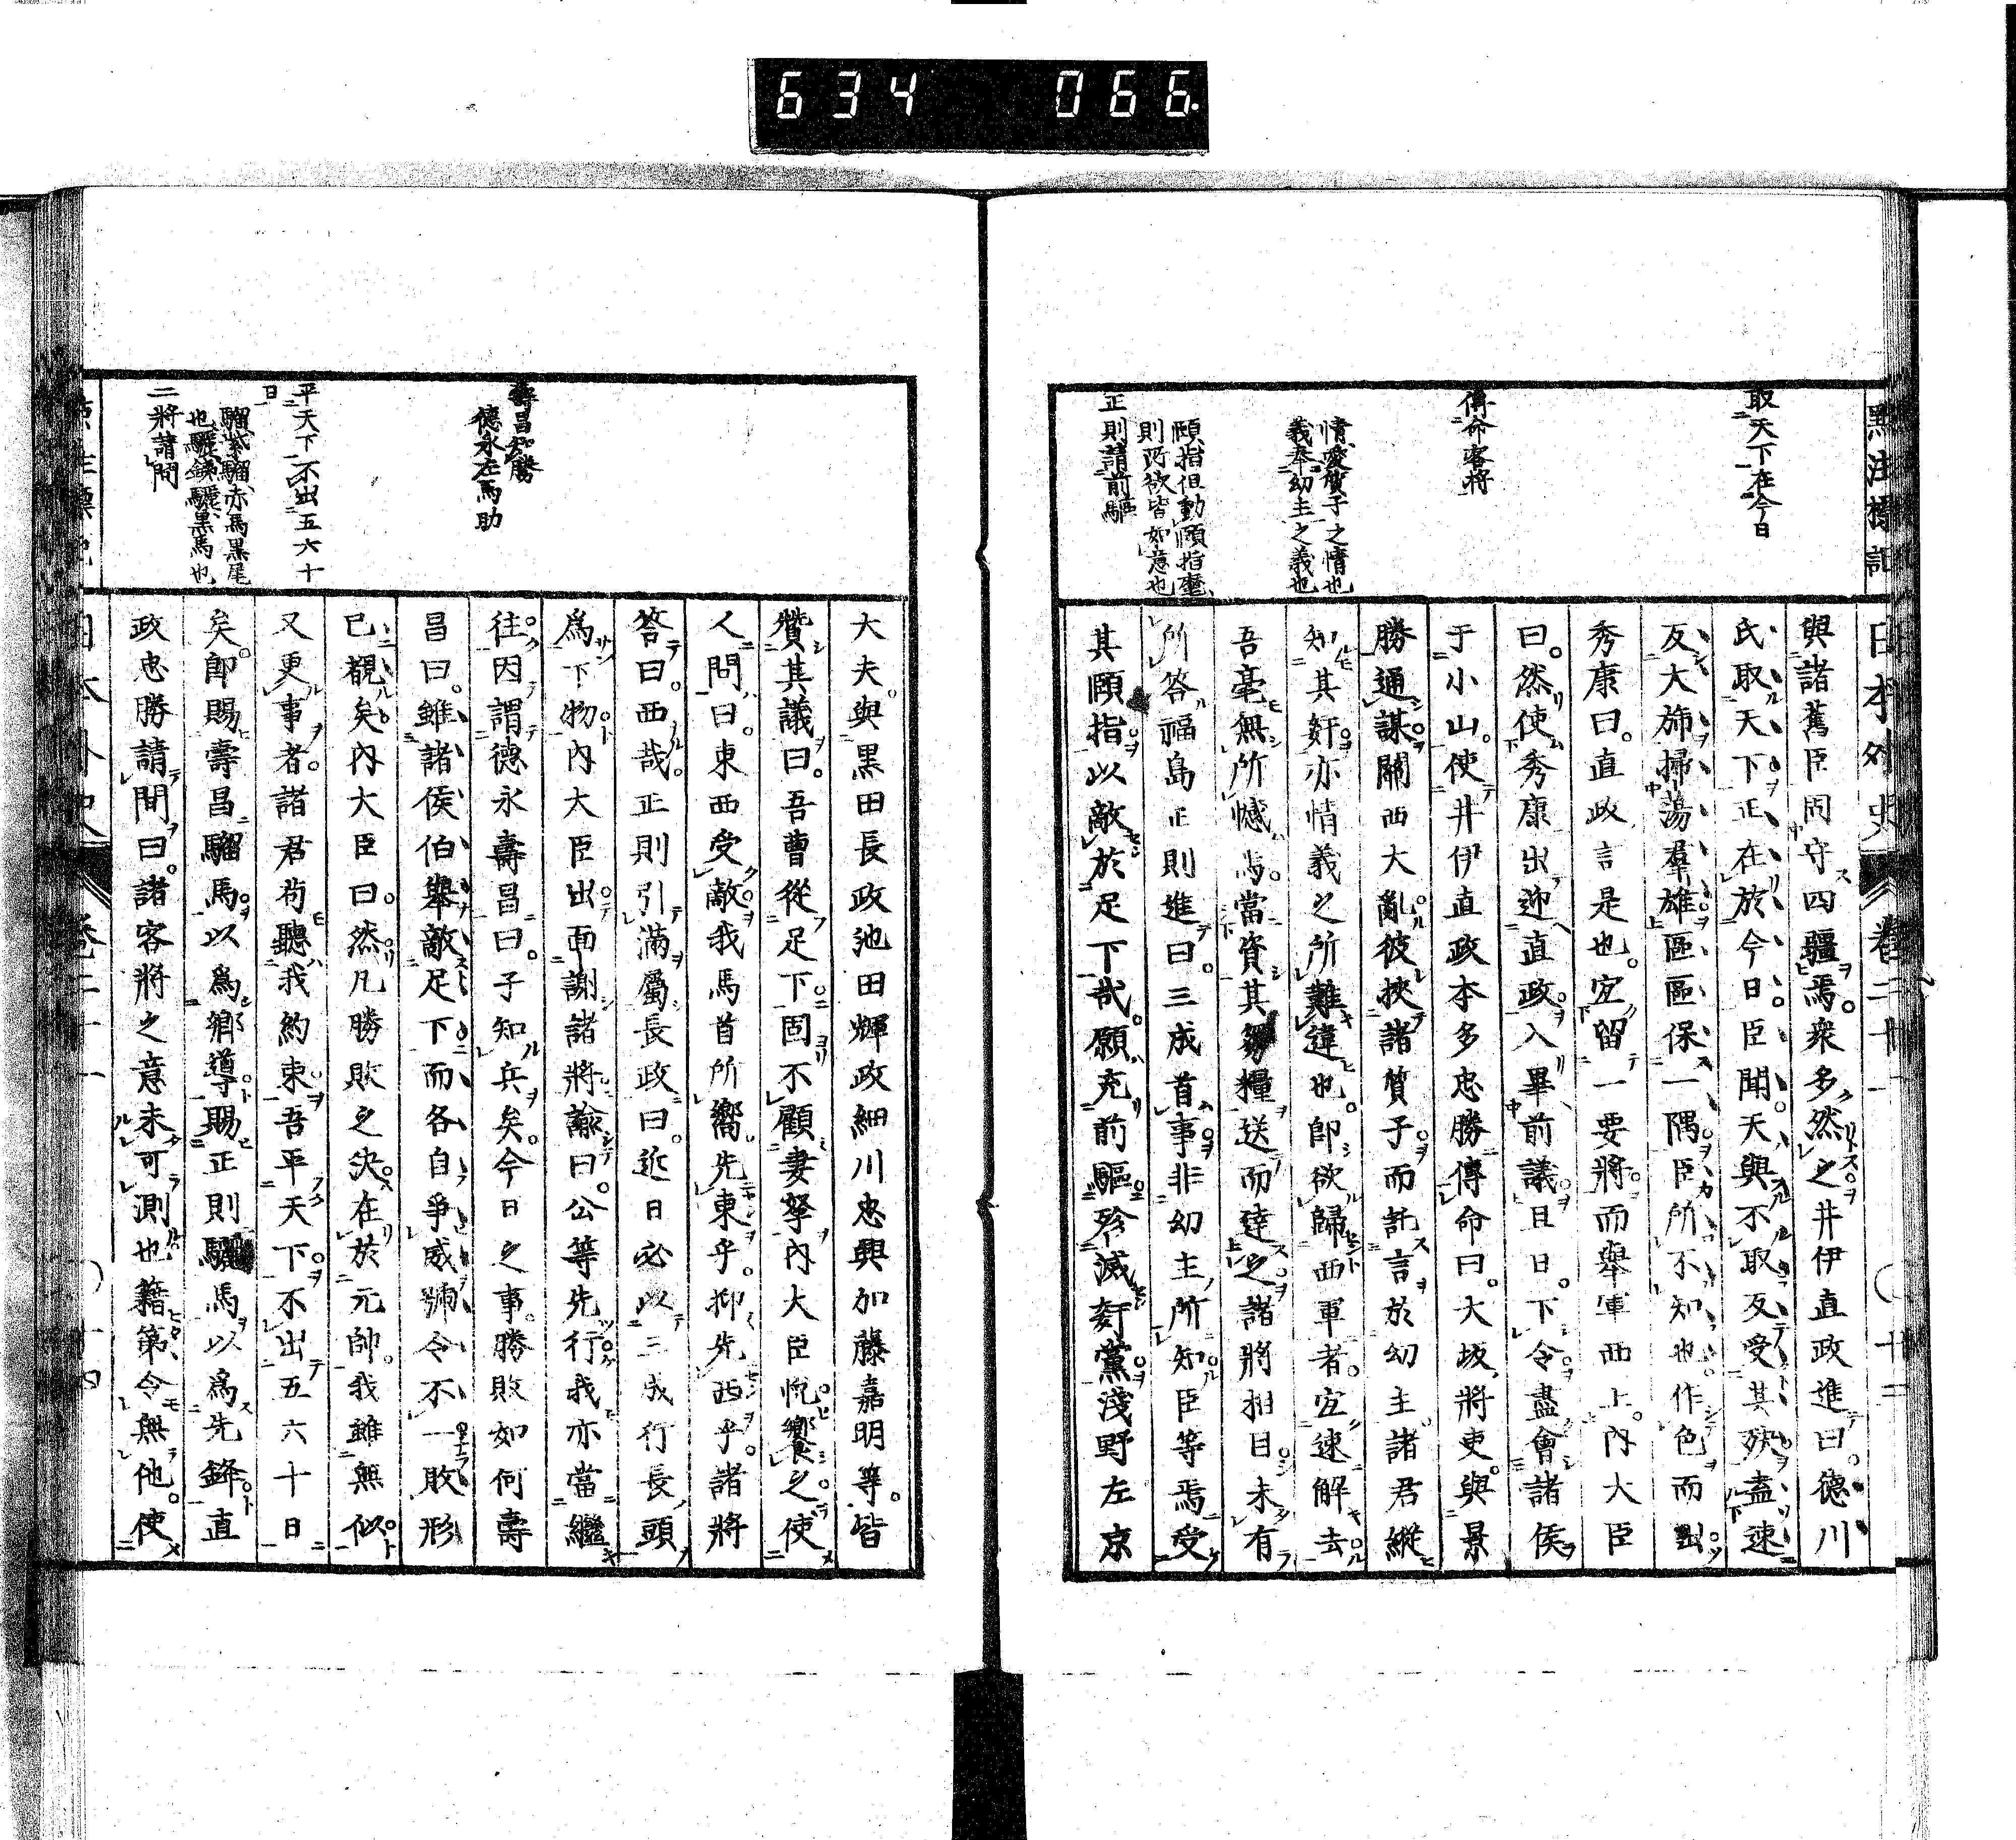 634 066.
點注標記
日本外史 卷二十一 〇十三
取天下在今日
傳命客將
情愛質子之情也
義奉幼主之義也
頤指但動頤指麾
則所欲皆如意也
正則請前驅
與諸舊臣固守四疆焉。衆多然之井伊直政進曰。德川
氏取天下正在於今日。臣聞天與不取反受其殃。盍速
反大旆掃蕩羣雄區區保一隅臣所不知也。作色而出
秀康曰。直政言是也。宜留一要將。而舉軍西上。內大臣
曰。然使秀康出迎直政入畢前議旦日。下令盡會諸侯
于小山。使井伊直政本多忠勝傳命曰。大坂將吏。與景
勝通謀關西大亂彼挾諸質子而託言於幼主諸君縱
知其奸亦情義之所難違也。卽欲歸西軍者。宜速解去
吾毫無所憾焉。當資其芻糧送而達之諸將相目未有
所答福島正則進曰。三成首事非幼主所知臣等焉受
其頤指以敵於足下哉。願充前驅殄滅奸黨淺野左京
大夫與黑田長政池田輝政細川忠興加藤嘉明等。皆
贊其議曰。吾曹從足下。固不顧妻孥內大臣悅饗之使
人問曰。東西受敵我馬首所嚮先東乎。抑先西乎。諸將
答曰。西哉。正則引滿屬長政曰。近日必以三成行長頭
爲下物內大臣出面謝諸將諭曰。公等先行我亦當繼
往因謂德永壽昌曰。子知兵矣。今日之事。勝敗如何壽
昌曰。雖諸侯伯舉敵足下而各自爭威號令不一敗形
已覩矣內大臣曰。然凡勝敗之決在於元帥。我雖無似
又更事者。諸君苟聽我約束吾平天下不出五六十日
矣。卽賜壽昌騮馬以爲鄕導賜正則驪馬以爲先鋒直
政忠勝請間曰。諸客將之意未可測也籍第令無他。使
壽昌知勝
德永左馬助
平天下不出五六十
日
騮紫騮赤馬黑尾
也驪鐵驪黑馬也
二將請間